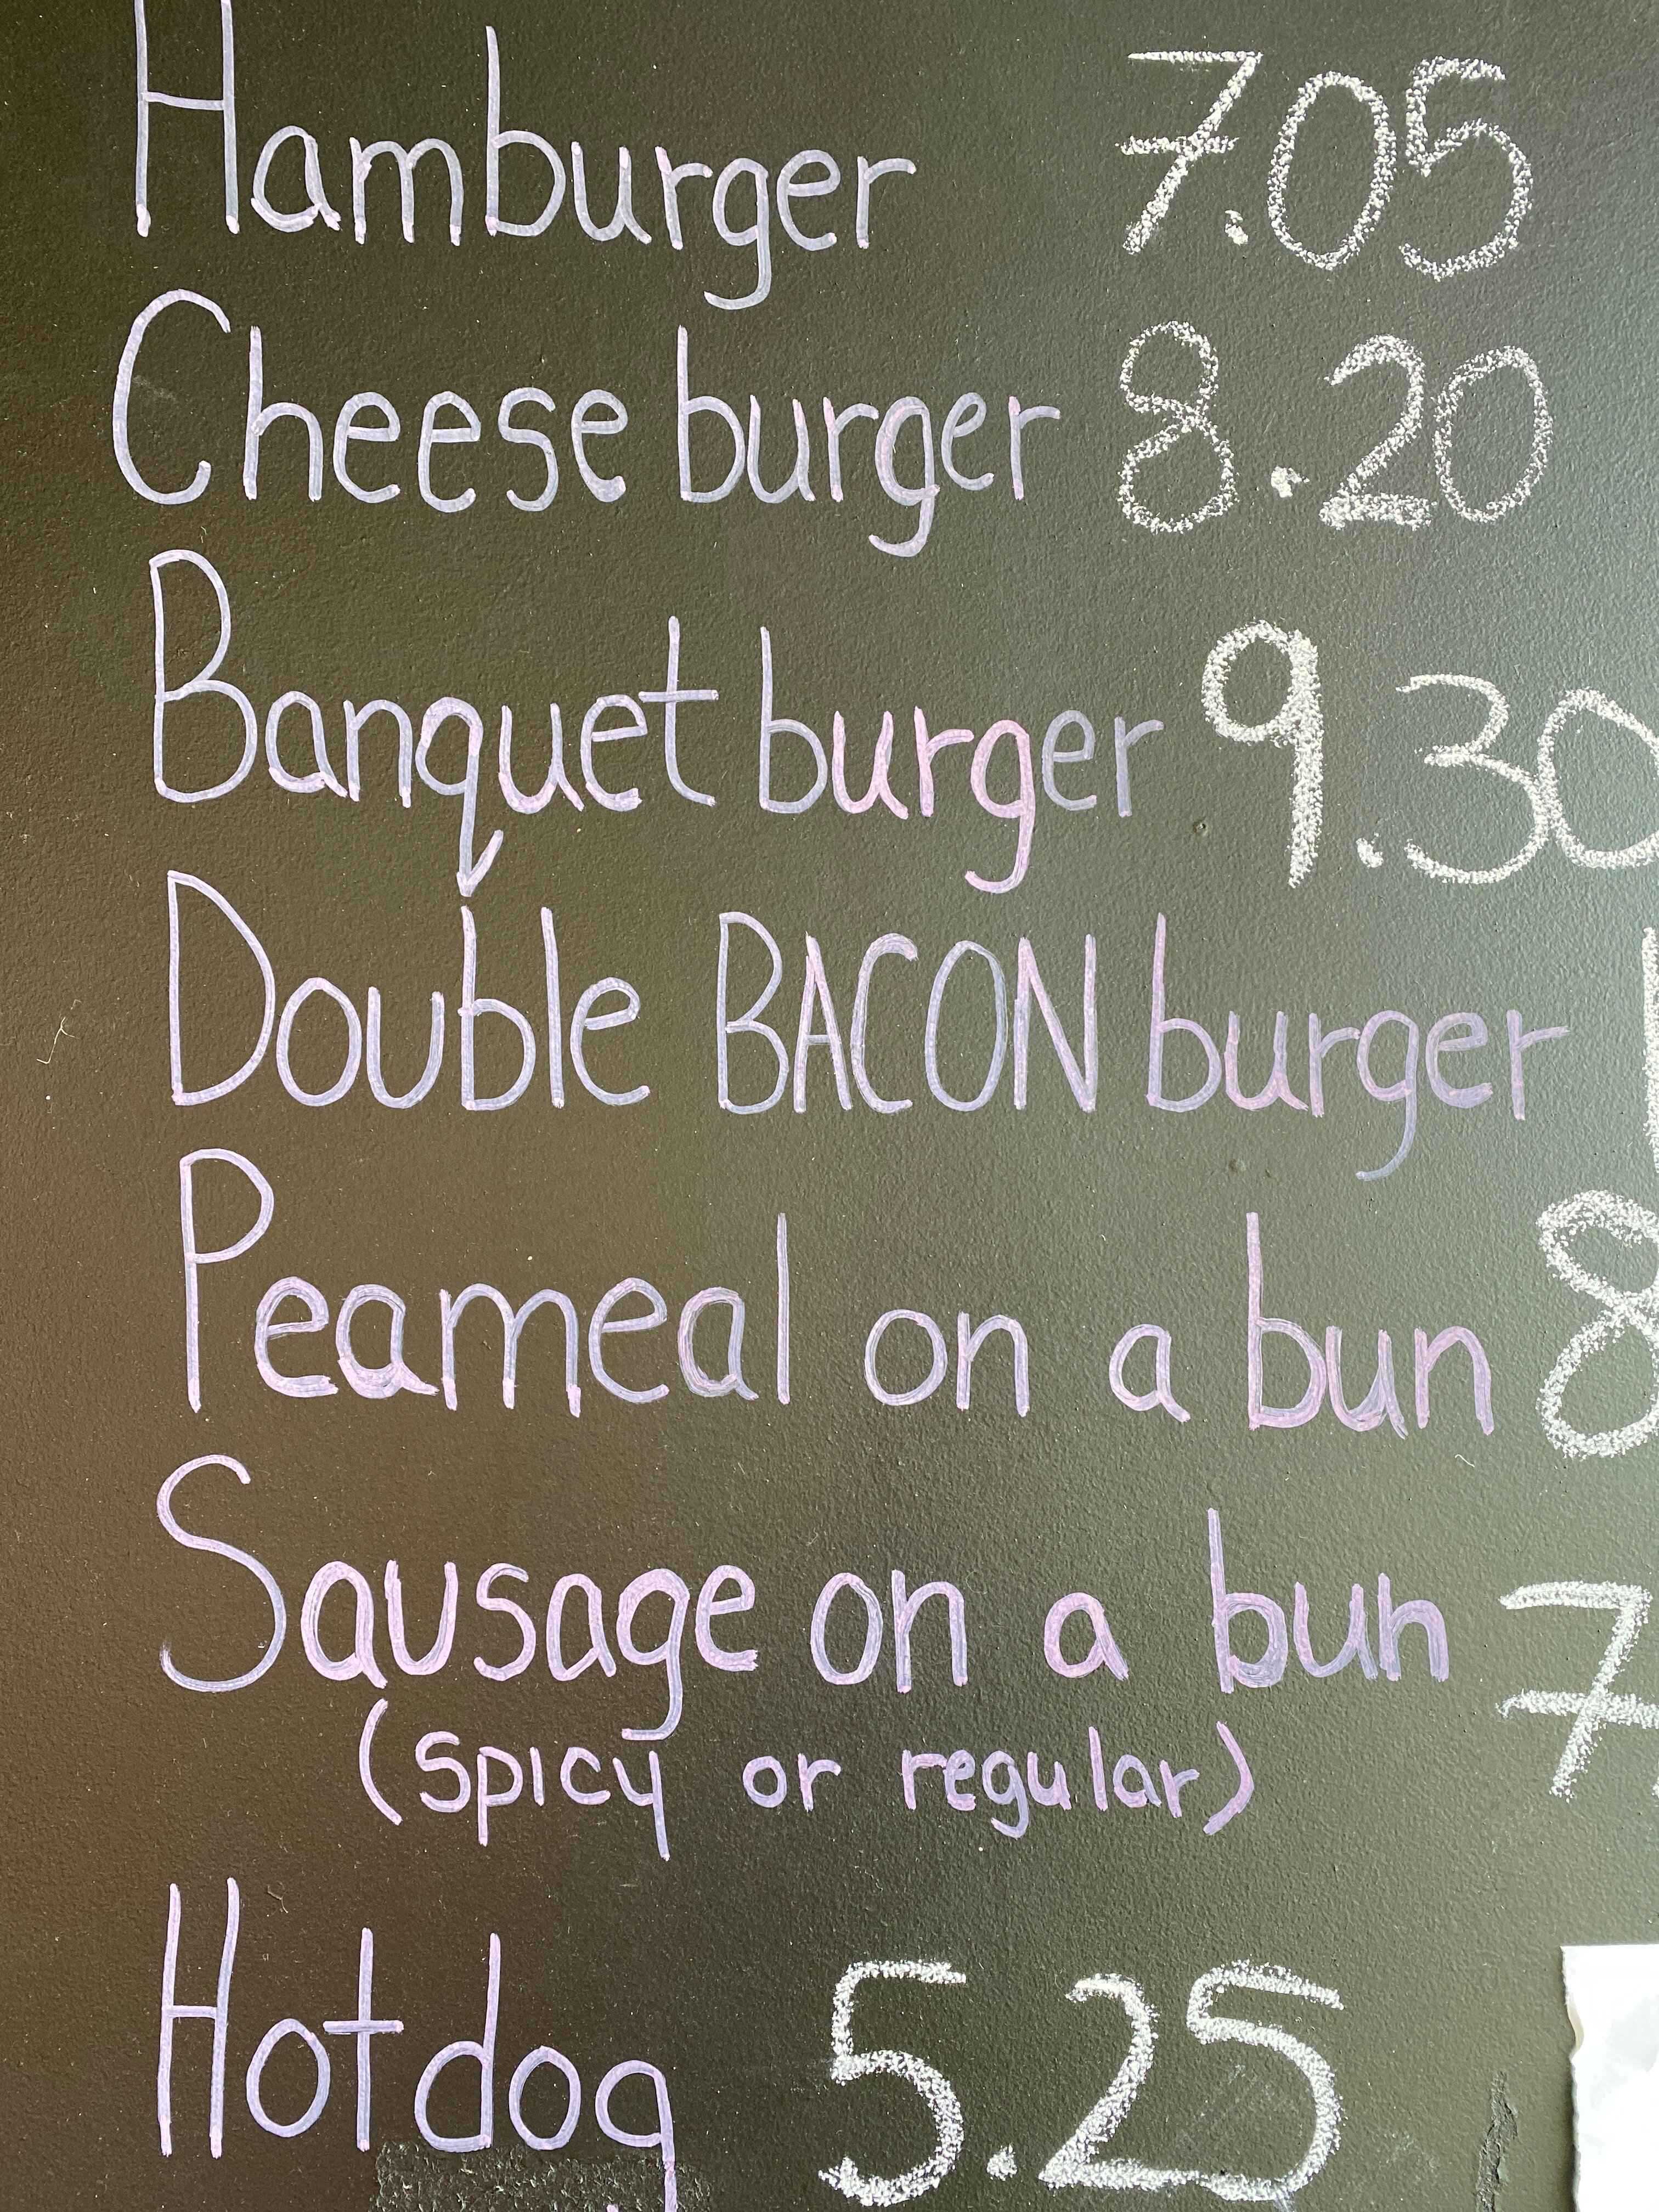 Hamburger 7.05
Cheese burger 8.20
Banquet burger 9.30
Double BACON burger
Peameal on a bun 8
Sausage on a bun 7.
(spicy or regular)
Hotdog 5.25